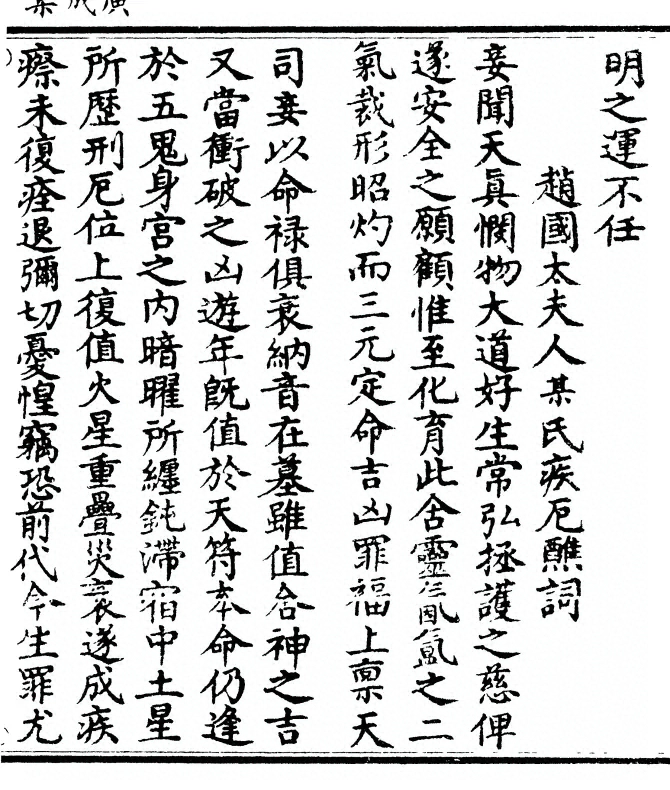 明之運不任
趙國太夫人某氏疾厄醮詞
妾聞天眞憫物大道好生常弘拯護之慈俾
遂安全之願顧惟至化育此含靈氤氳之二
氣裁形昭灼而三元定命吉凶罪福上禀天
司妾以命禄俱衰納音在墓雖值合神之吉
又當衝破之凶遊年旣值於天符本命仍逢
於五鬼身宮之内暗曜所纏鈍滯宿中土星
所歷刑厄位上復值火星重疊災衰遂成疾
瘵未復痊退彌切憂惶竊恐前代今生罪尤